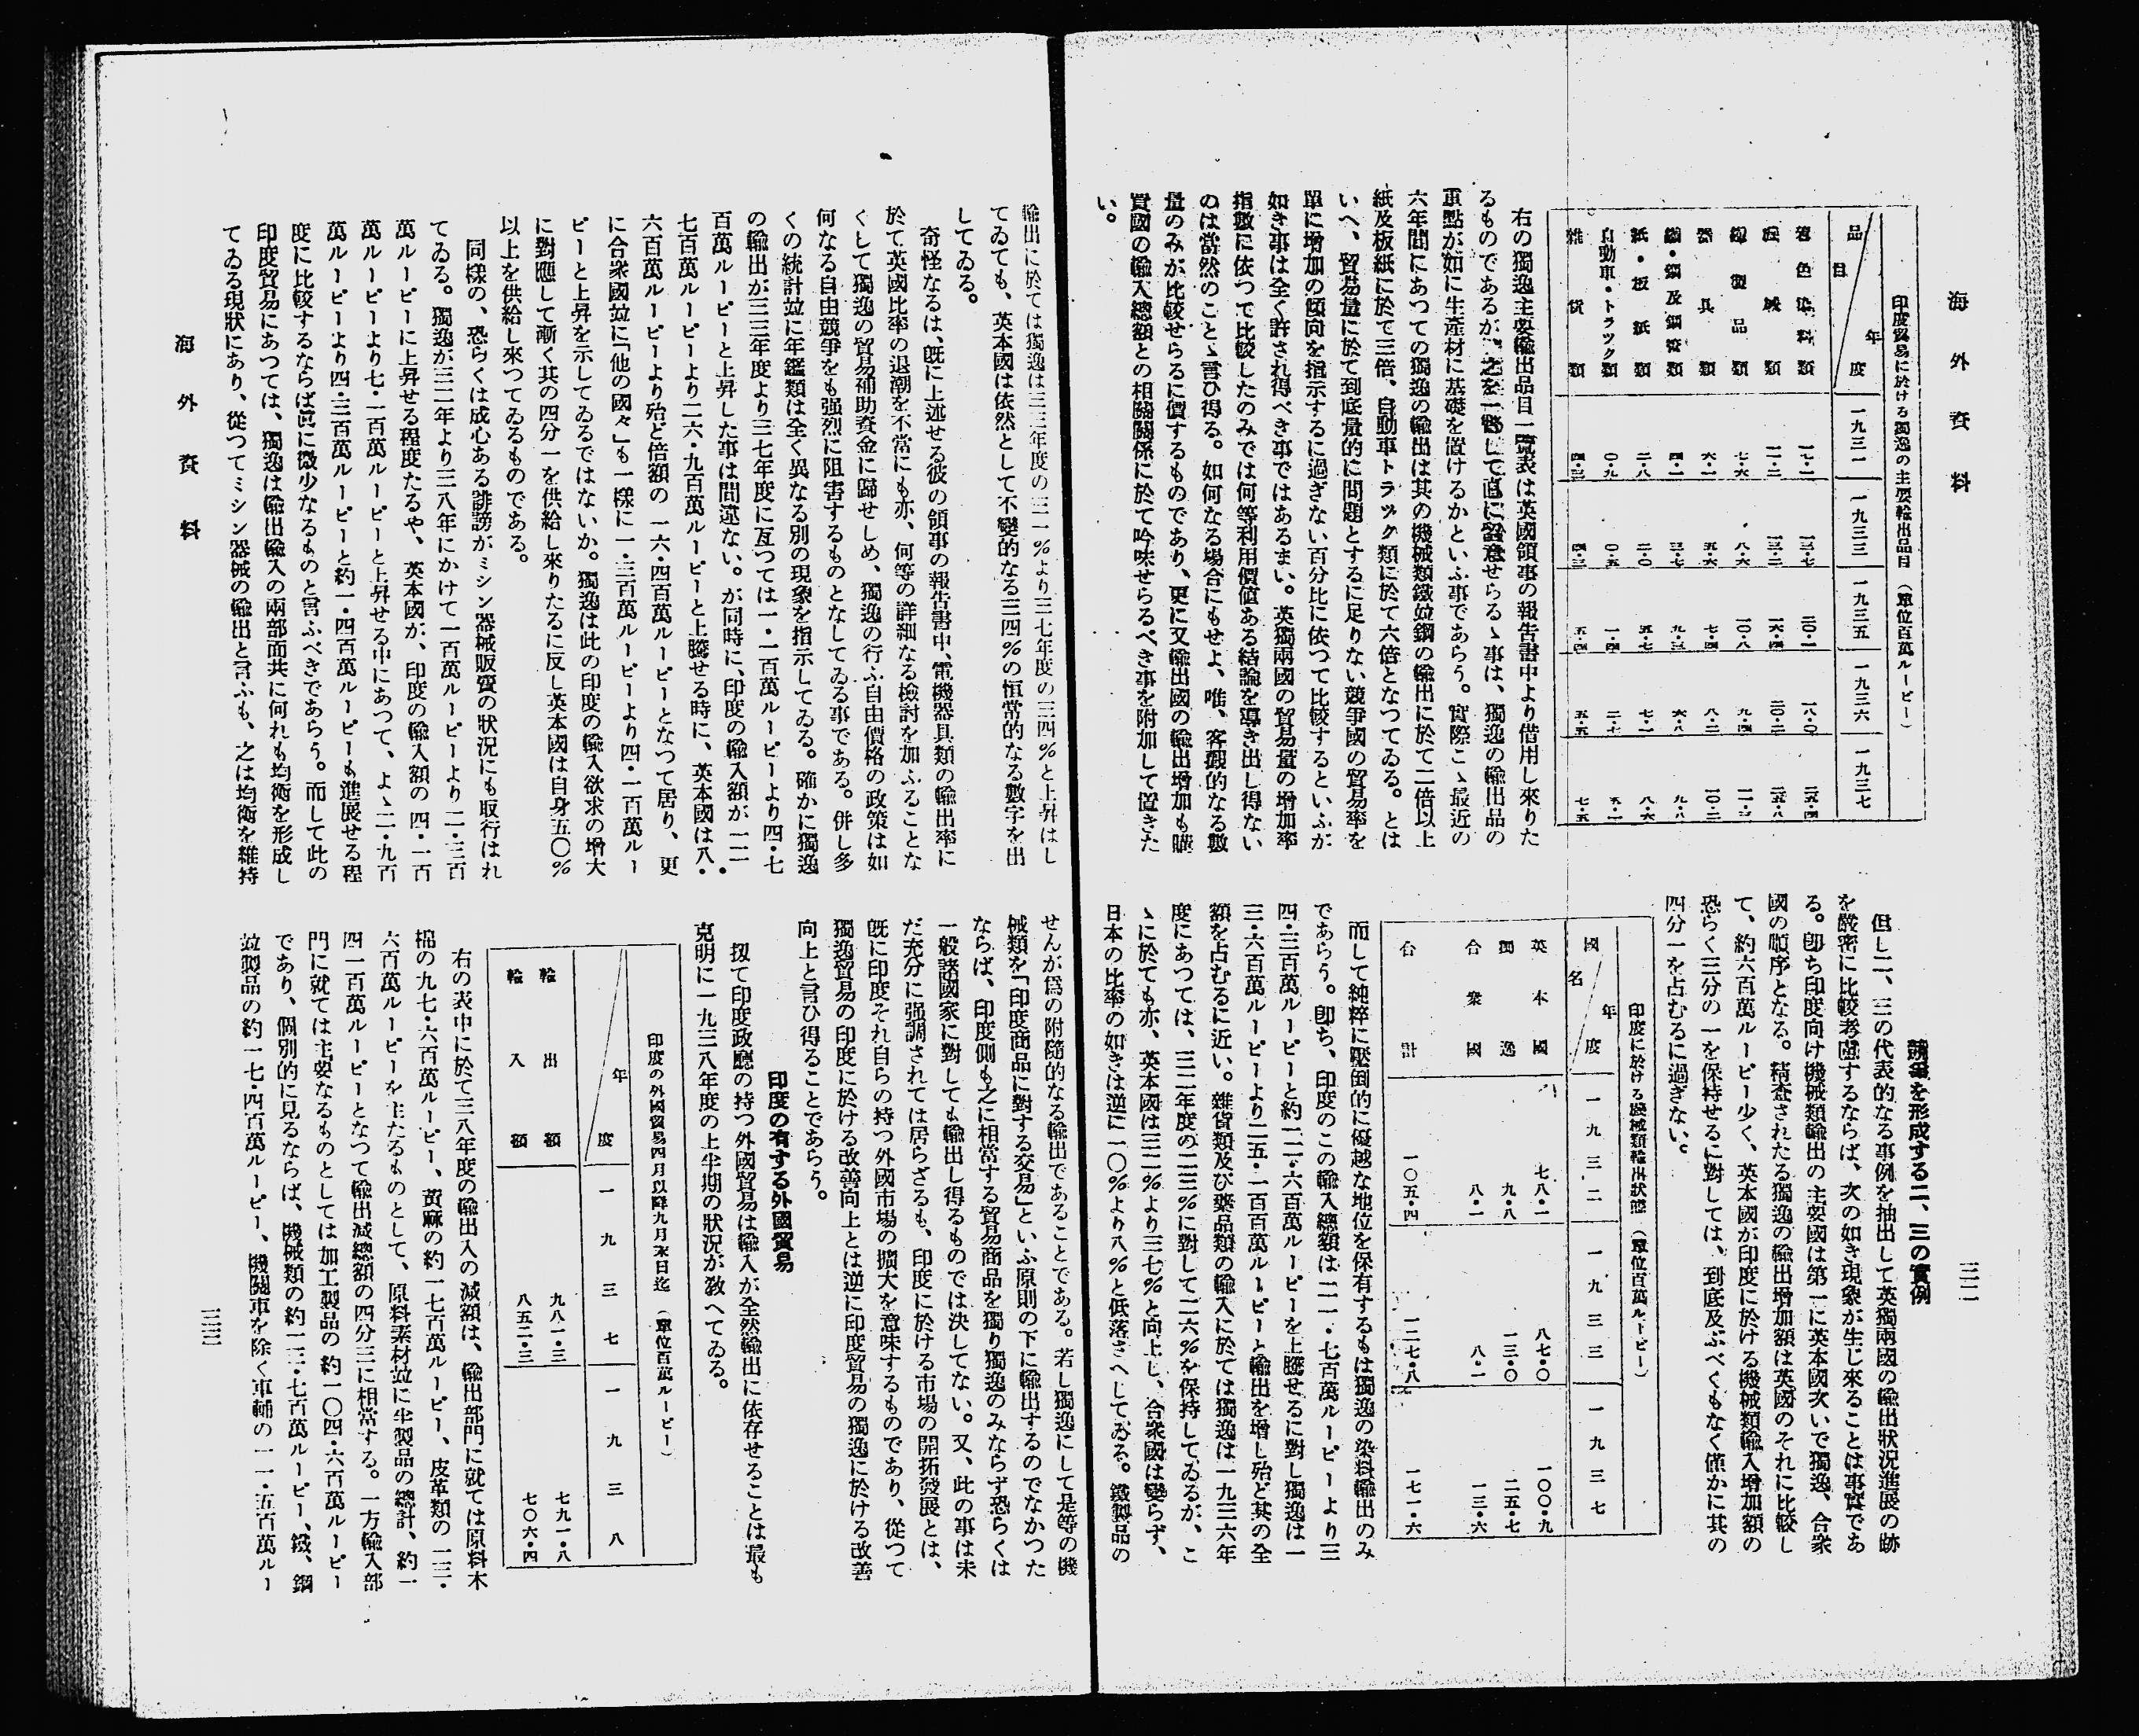 海外資料
三二
印度貿易に於ける獨逸の主要輸出品目（單位百萬ルーピー）
品目／年度 一九三二 一九三三 一九三五 一九三六 一九三七
着色染料類
機械類
類
器具類
鐵・鋼及鋼管類
紙・板紙類
自動車・トラック類
雜貨類
右の獨逸主要輸出品目一覽表は英國領事の報告書中より借用し來りた
るものであるが、之を一瞥して直に留意せらるゝ事は、獨逸の輸出品の
重點が如何に生產材に基礎を置けるかといふ事であらう。實際こゝ最近の
六年間にあつての獨逸の輸出は其の機械類鐵竝鋼の輸出に於て二倍以上
紙及板紙に於て三倍、自動車トラック類に於て六倍となつてゐる。とは
いへ、貿易量に於て到底量的に問題とするに足りない競爭國の貿易率を
單に增加の傾向を指示するに過ぎない百分比に依つて比較するといふが
如き事は全く許され得べき事ではあるまい。英獨兩國の貿易量の增加率
指數に依つて比較したのみでは何等利用價値ある結論を導き出し得ない
のは當然のことゝ言ひ得る。如何なる場合にもせよ、唯、客觀的なる數
量のみが比較せらるに價するものであり、更に又輸出國の輸出增加も購
買國の輸入總額との相關關係に於て吟味せらるべき事を附加して置きた
い。
競爭を形成する二、三の實例
但し二、三の代表的なる事例を抽出して英獨兩國の輸出狀況進展の跡
を嚴密に比較考國するならば、次の如き現象が生じ來ることは事實であ
る。卽ち印度向け機械類輸出の主要國は第一に英本國次いで獨逸、合衆
國の順序となる。精査されたる獨逸の輸出增加額は英國のそれに比較し
て、約六百萬ルーピー少く、英本國が印度に於ける機械類輸入增加額の
恐らく三分の一を保持せるに對しては、到底及ぶべくもなく僅かに其の
四分一を占むるに過ぎない。
印度に於ける機械類輸出狀態（單位百萬ルーピー）
國名／年度 一九三二 一九三三 一九三七
英本國 七八・一 八七・〇 一〇〇・九
獨逸 九・八 一三・〇 二五・七
合衆國 八・一 八・一 一三・六
合計 一〇五・四 一二七・八 一七一・六
而して純粹に壓倒的に優越な地位を保有するもは獨逸の染料輸出のみ
であらう。卽ち、印度のこの輸入總額は二一・七百萬ルーピーより三
四・三百萬ルーピーと約一二・六百萬ルーピーを上騰せるに對し獨逸は一
三・六百萬ルーピーより二五・一百百萬ルーピーと輸出を增し殆ど其の全
額を占むるに近い。雜貨類及び藥品類の輸入に於ては獨逸は一九三六年
度にあつては、三二年度の二三％に對して二六％を保持してゐるが、こ
ゝに於ても亦、英本國は三二％より三七％と向上し、合衆國は變らず、
日本の比率の如きは逆に一〇％より八％と低落さへしてゐる。鐵製品の
輸出に於ては獨逸は三三年度の三一％より三七年度の三四％と上昇はし
てゐても、英本國は依然として不變的なる三四％の恒常的なる數字を出
してゐる。
奇怪なるは、旣に上述せる彼の領事の報告書中、電機器具類の輸出率に
於て英國比率の退潮を不當にも亦、何等の詳細なる檢討を加ふることな
くして獨逸の貿易補助資金に歸せしめ、獨逸の行ふ自由價格の政策は如
何なる自由競爭をも强烈に阻害するものとなしてゐる事である。併し多
くの統計竝に年鑑類は全く異なる別の現象を指示してゐる。確かに獨逸
の輸出が三三年度より三七年度に亙つては一・一百萬ルーピーより四・七
百萬ルーピーと上昇した事は間違ない。が同時に、印度の輸入額が一二・
七百萬ルーピーより二六・九百萬ルーピーと上騰せる時に、英本國は八・
六百萬ルーピーより殆ど倍額の一六・四百萬ルーピーとなつて居り、更
に合衆國竝に「他の國々」も一樣に一・三百萬ルーピーより四・二百萬ルー
ピーと上昇を示してゐるではないか。獨逸は此の印度の輸入欲求の增大
に對應して漸く其の四分一を供給し來りたるに反し英本國は自身五〇％
以上を供給し來つてゐるものである。
同樣の、恐らくは成心ある誹謗がミシン器械販賣の狀況にも取行はれ
てゐる。獨逸が三二年より三八年にかけて一百萬ルーピーより二・三百
萬ルーピーに上昇せる程度たるや、英本國が、印度の輸入額の四・一百
萬ルーピーより七・一百萬ルーピーと上昇せる中にあつて、よゝ二・九百
萬ルーピーより四・三百萬ルーピーと約一・四百萬ルーピーも進展せる程
度に比較するならば眞に微少なるものと言ふべきであらう。而して此の
印度貿易にあつては、獨逸は輸出輸入の兩部面共に何れも均衡を形成し
てゐる現狀にあり、從つてミシン器械の輸出と言ふも、之は均衡を維持
海外資料
せんが爲の附隨的なる輸出であることである。若し獨逸にして是等の機
械類を「印度商品に對する交易」といふ原則の下に輸出するのでなかつた
ならば、印度側も之に相當する貿易商品を獨り獨逸のみならず恐らくは
一般諸國家に對しても輸出し得るものでは決してない。又、此の事は未
だ充分に强調されては居らざるも、印度に於ける市場の開拓發展とは、
旣に印度それ自らの持つ外國市場の擴大を意味するものであり、從つて
獨逸貿易の印度に於ける改善向上とは逆に印度貿易の獨逸に於ける改善
向上と言ひ得ることであらう。
印度の有する外國貿易
扨て印度政廳の持つ外國貿易は輸入が全然輸出に依存せることは最も
克明に一九三八年度の上半期の狀況が敎へてゐる。
印度の外國貿易四月以降九月末日迄（單位百萬ルーピー）
年度 一九三七 一九三八
輸出額 九八一・三 七九一・八
輸入額 八五二・三 七〇六・四
右の表中に於て三八年度の輸出入の減額は、輸出部門に就ては原料木
棉の九七・六百萬ルーピー、黃麻の約一七百萬ルーピー、皮革類の一三・
六百萬ルーピーを主たるものとして、原料素材竝に半製品の總計、約一
四一百萬ルーピーとなつて輸出減總額の四分三に相當する。一方輸入部
門に就ては主要なるものとしては加工製品の約一〇四・六百萬ルーピー
であり、個別的に見るならば、機械類の約一三・七百萬ルーピー、鐵、鋼
竝製品の約一七・四百萬ルーピー、機關車を除く車輛の一一・五百萬ルー
三三